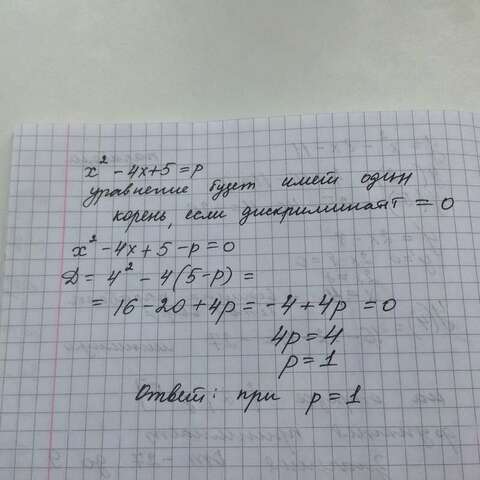 x² - 4x + 5 = p
уравнение будет иметь один
корень, если дискриминант = 0
x² - 4x + 5 - p = 0
D = 4² - 4(5-p) =
= 16 - 20 + 4p = -4 + 4p = 0
4p = 4
p = 1
Ответ: при p = 1